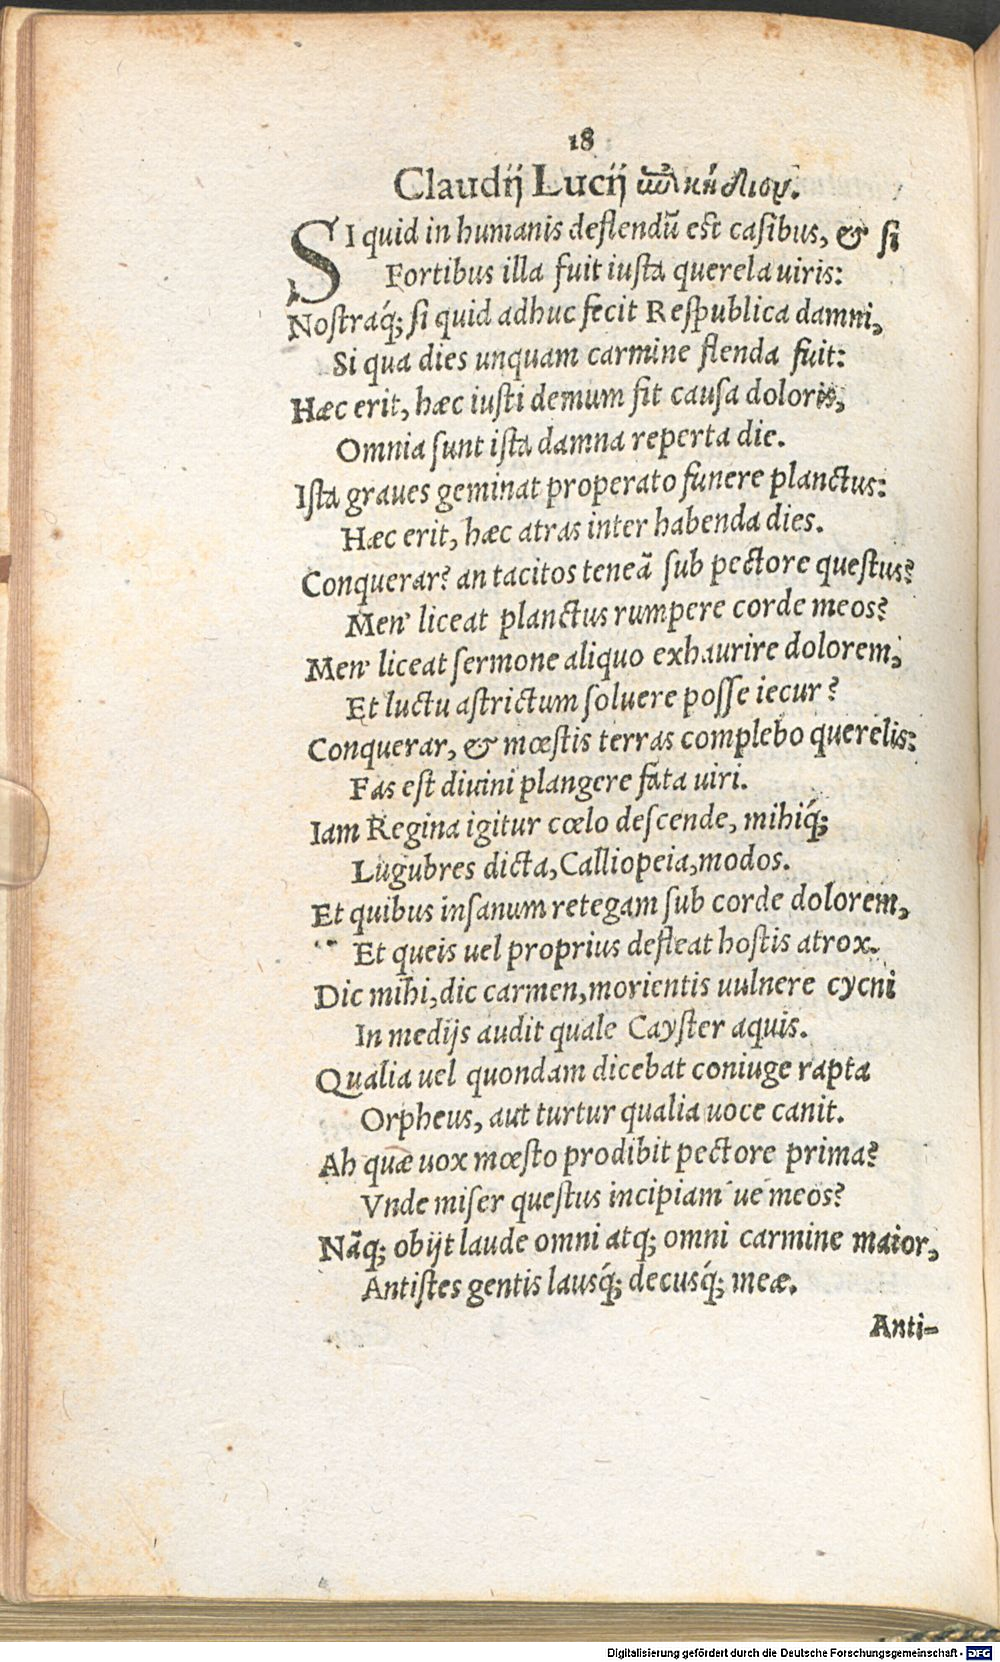 18
Claudij Lucij ἐπικήδιον.
SI quid in humanis deflendũ est casibus, & si
Fortibus illa fuit iusta querela uiris:
Nostraq́; si quid adhuc fecit Respublica damni,
Si qua dies unquam carmine flenda fuit:
Hæc erit, hæc iusti demum fit causa doloris,
Omnia sunt ista damna reperta die.
Ista graues geminat properato funere planctus:
Hæc erit, hæc atras inter habenda dies.
Conquerar? an tacitos teneã sub pectore questus?
Men' liceat planctus rumpere corde meos?
Men' liceat sermone aliquo exhaurire dolorem,
Et luctu astrictum soluere posse iecur?
Conquerar, & mœstis terras complebo querelis:
Fas est diuini plangere fata uiri.
Iam Regina igitur cœlo descende, mihiq́;
Lugubres dicta, Calliopeia, modos.
Et quibus insanum retegam sub corde dolorem,
Et queis uel proprius defleat hostis atrox.
Dic mihi, dic carmen, morientis uulnere cycni
In medijs audit quale Cayster aquis.
Qualia uel quondam dicebat coniuge rapta
Orpheus, aut turtur qualia uoce canit.
Ah quæ uox mœsto prodibit pectore prima?
Vnde miser questus incipiam ue meos?
Nãq; obijt laude omni atq; omni carmine maior,
Antistes gentis lausq́; decusq́; meæ.
Anti-
Digitalisierung gefördert durch die Deutsche Forschungsgemeinschaft - DFG